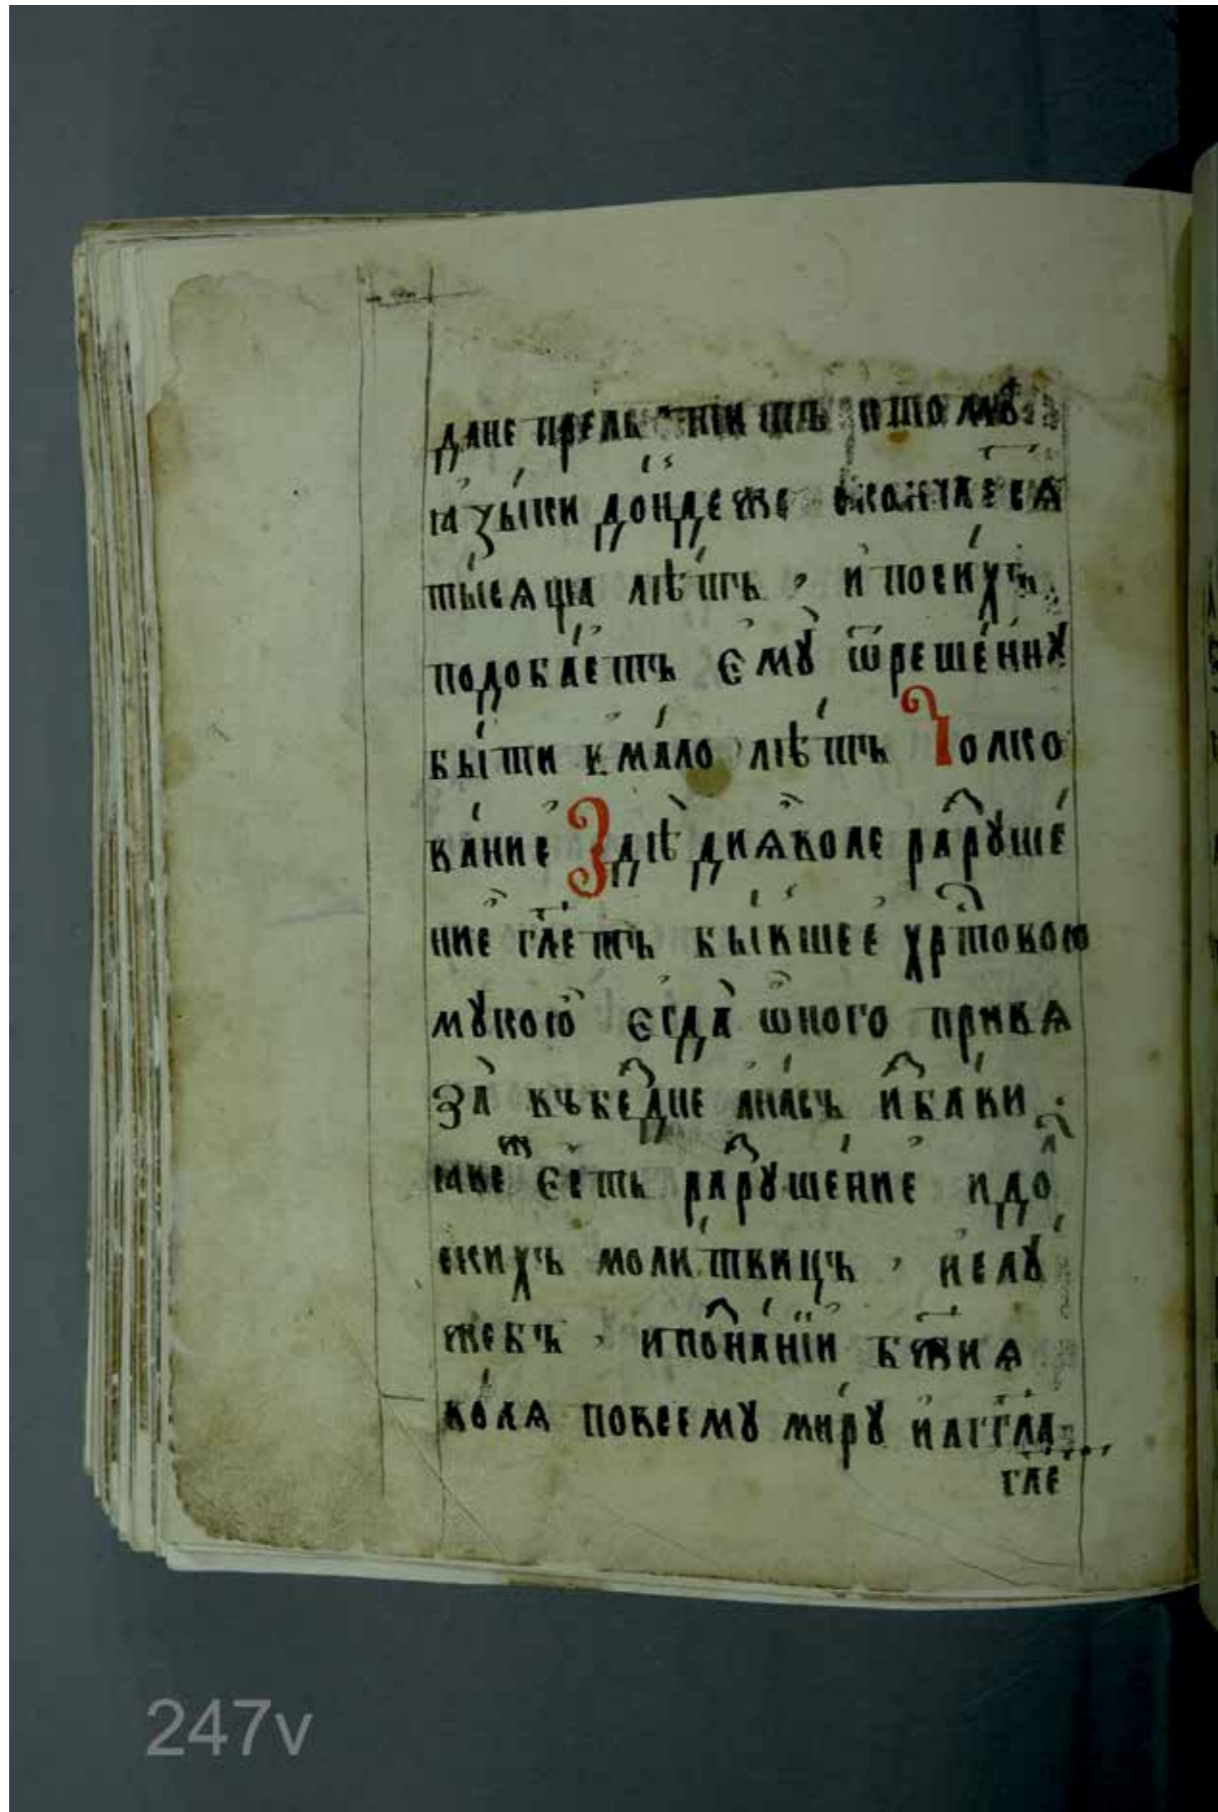 дане прельститъ ктомꙋ
ꙗ҆зы́ки до́ндеже скончае́тсѧ
ты́сѧща лѣ́тъ , и҆ посихъ
подоба́етъ є҆мꙋ̀ ѿрѣше́ннꙋ
бы́ти в̾ма́ло лѣ́тъ Толко
ва́ние Здѣ̀ диѧ́воле раⷥрꙋше́
ние гл҃етъ бы́вшее хрⷭ҇товою
мꙋкою є҆гда̀ ѡ҆ного привѧ
за̀ въбеⷥдне а҆насъ и҆ⷥбави .
ꙗвеⷭ є҆́сть раⷥрꙋше́ние идоⷧ
скихъ молитвицъ , и҆слꙋ́
жебъ , ипоⷥна́нїи бж҃иѧ
во́лѧ повсемꙋ ми́рꙋ и҆а҆гг҃ла
гле
247v